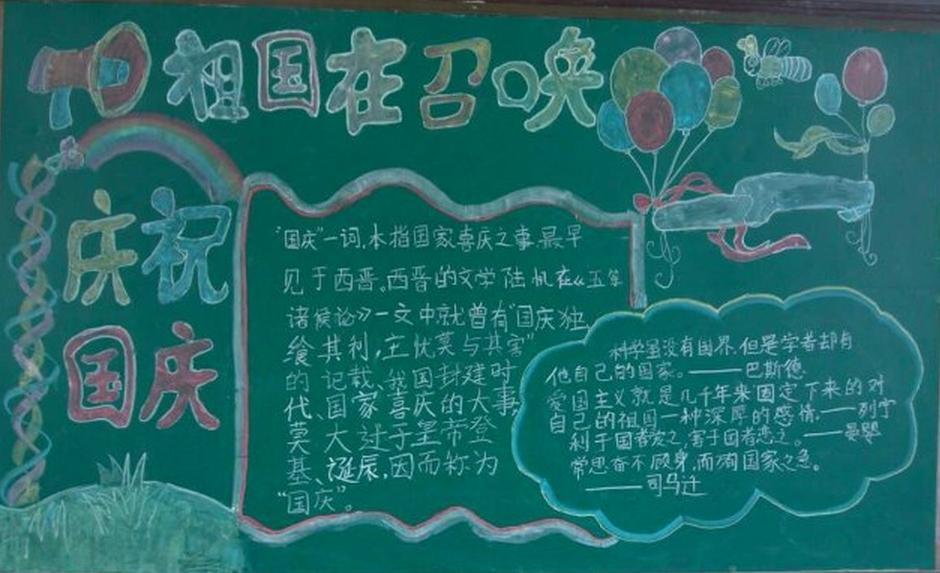 祖国在召唤
庆祝
国庆
"国庆"一词,本指国家喜庆之事最早
见于西晋。西晋的文学陆机在《五等
诸侯论》一文中就曾有"国庆独
飨其利,主忧莫与其害"
的记载、我国封建时
代、国家喜庆的大事,
莫大过于皇帝登
基、诞辰,因而称为
"国庆"。
科学虽没有国界,但是学者却有
他自己的国家。——巴斯德
爱国主义就是几千年来固定下来的对
自己的祖国一种深厚的感情。——列宁
利于国者爱之,害于国者恶之。——晏婴
常思奋不顾身,而殉国家之急。
——司马迁